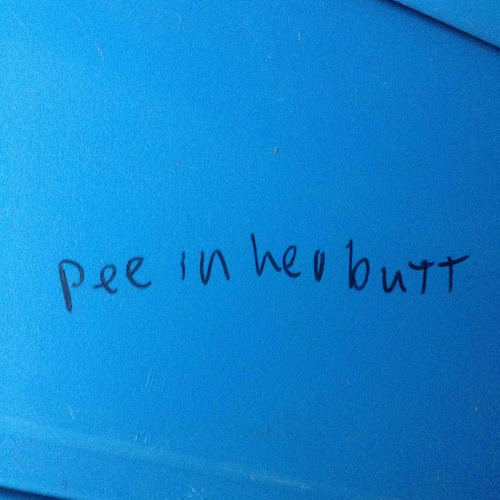 pee in her butt